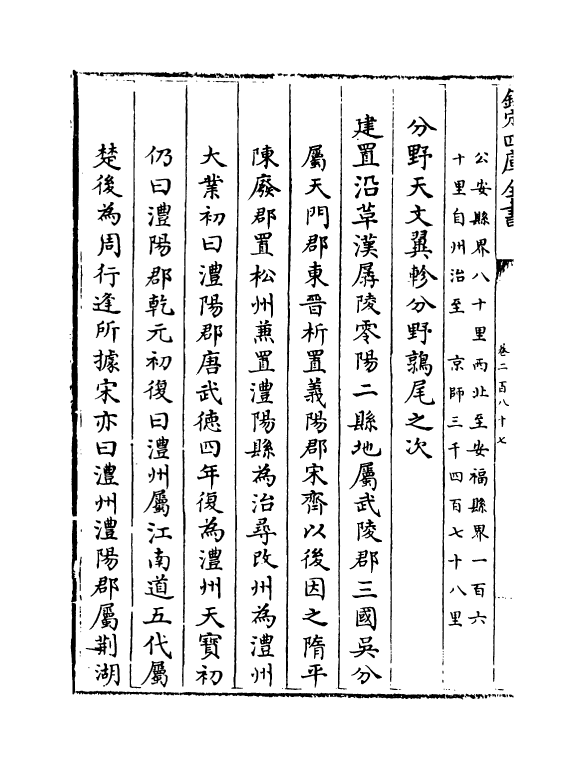 欽定四庫全書
卷二百八十七
公安縣界八十里西北至安福縣界一百六
十里自州治至　京師三千四百七十八里
分野天文翼軫分野鶉尾之次
建置沿革漢孱陵零陽二縣地屬武陵郡三國吳分
屬天門郡東晉析置義陽郡宋齊以後因之隋平
陳廢郡置松州兼置澧陽縣為治尋改州為澧州
大業初曰澧陽郡唐武徳四年復為澧州天寳初
仍曰澧陽郡乾元初復曰澧州屬江南道五代屬
楚後為周行逢所據宋亦曰澧州澧陽郡屬荆湖